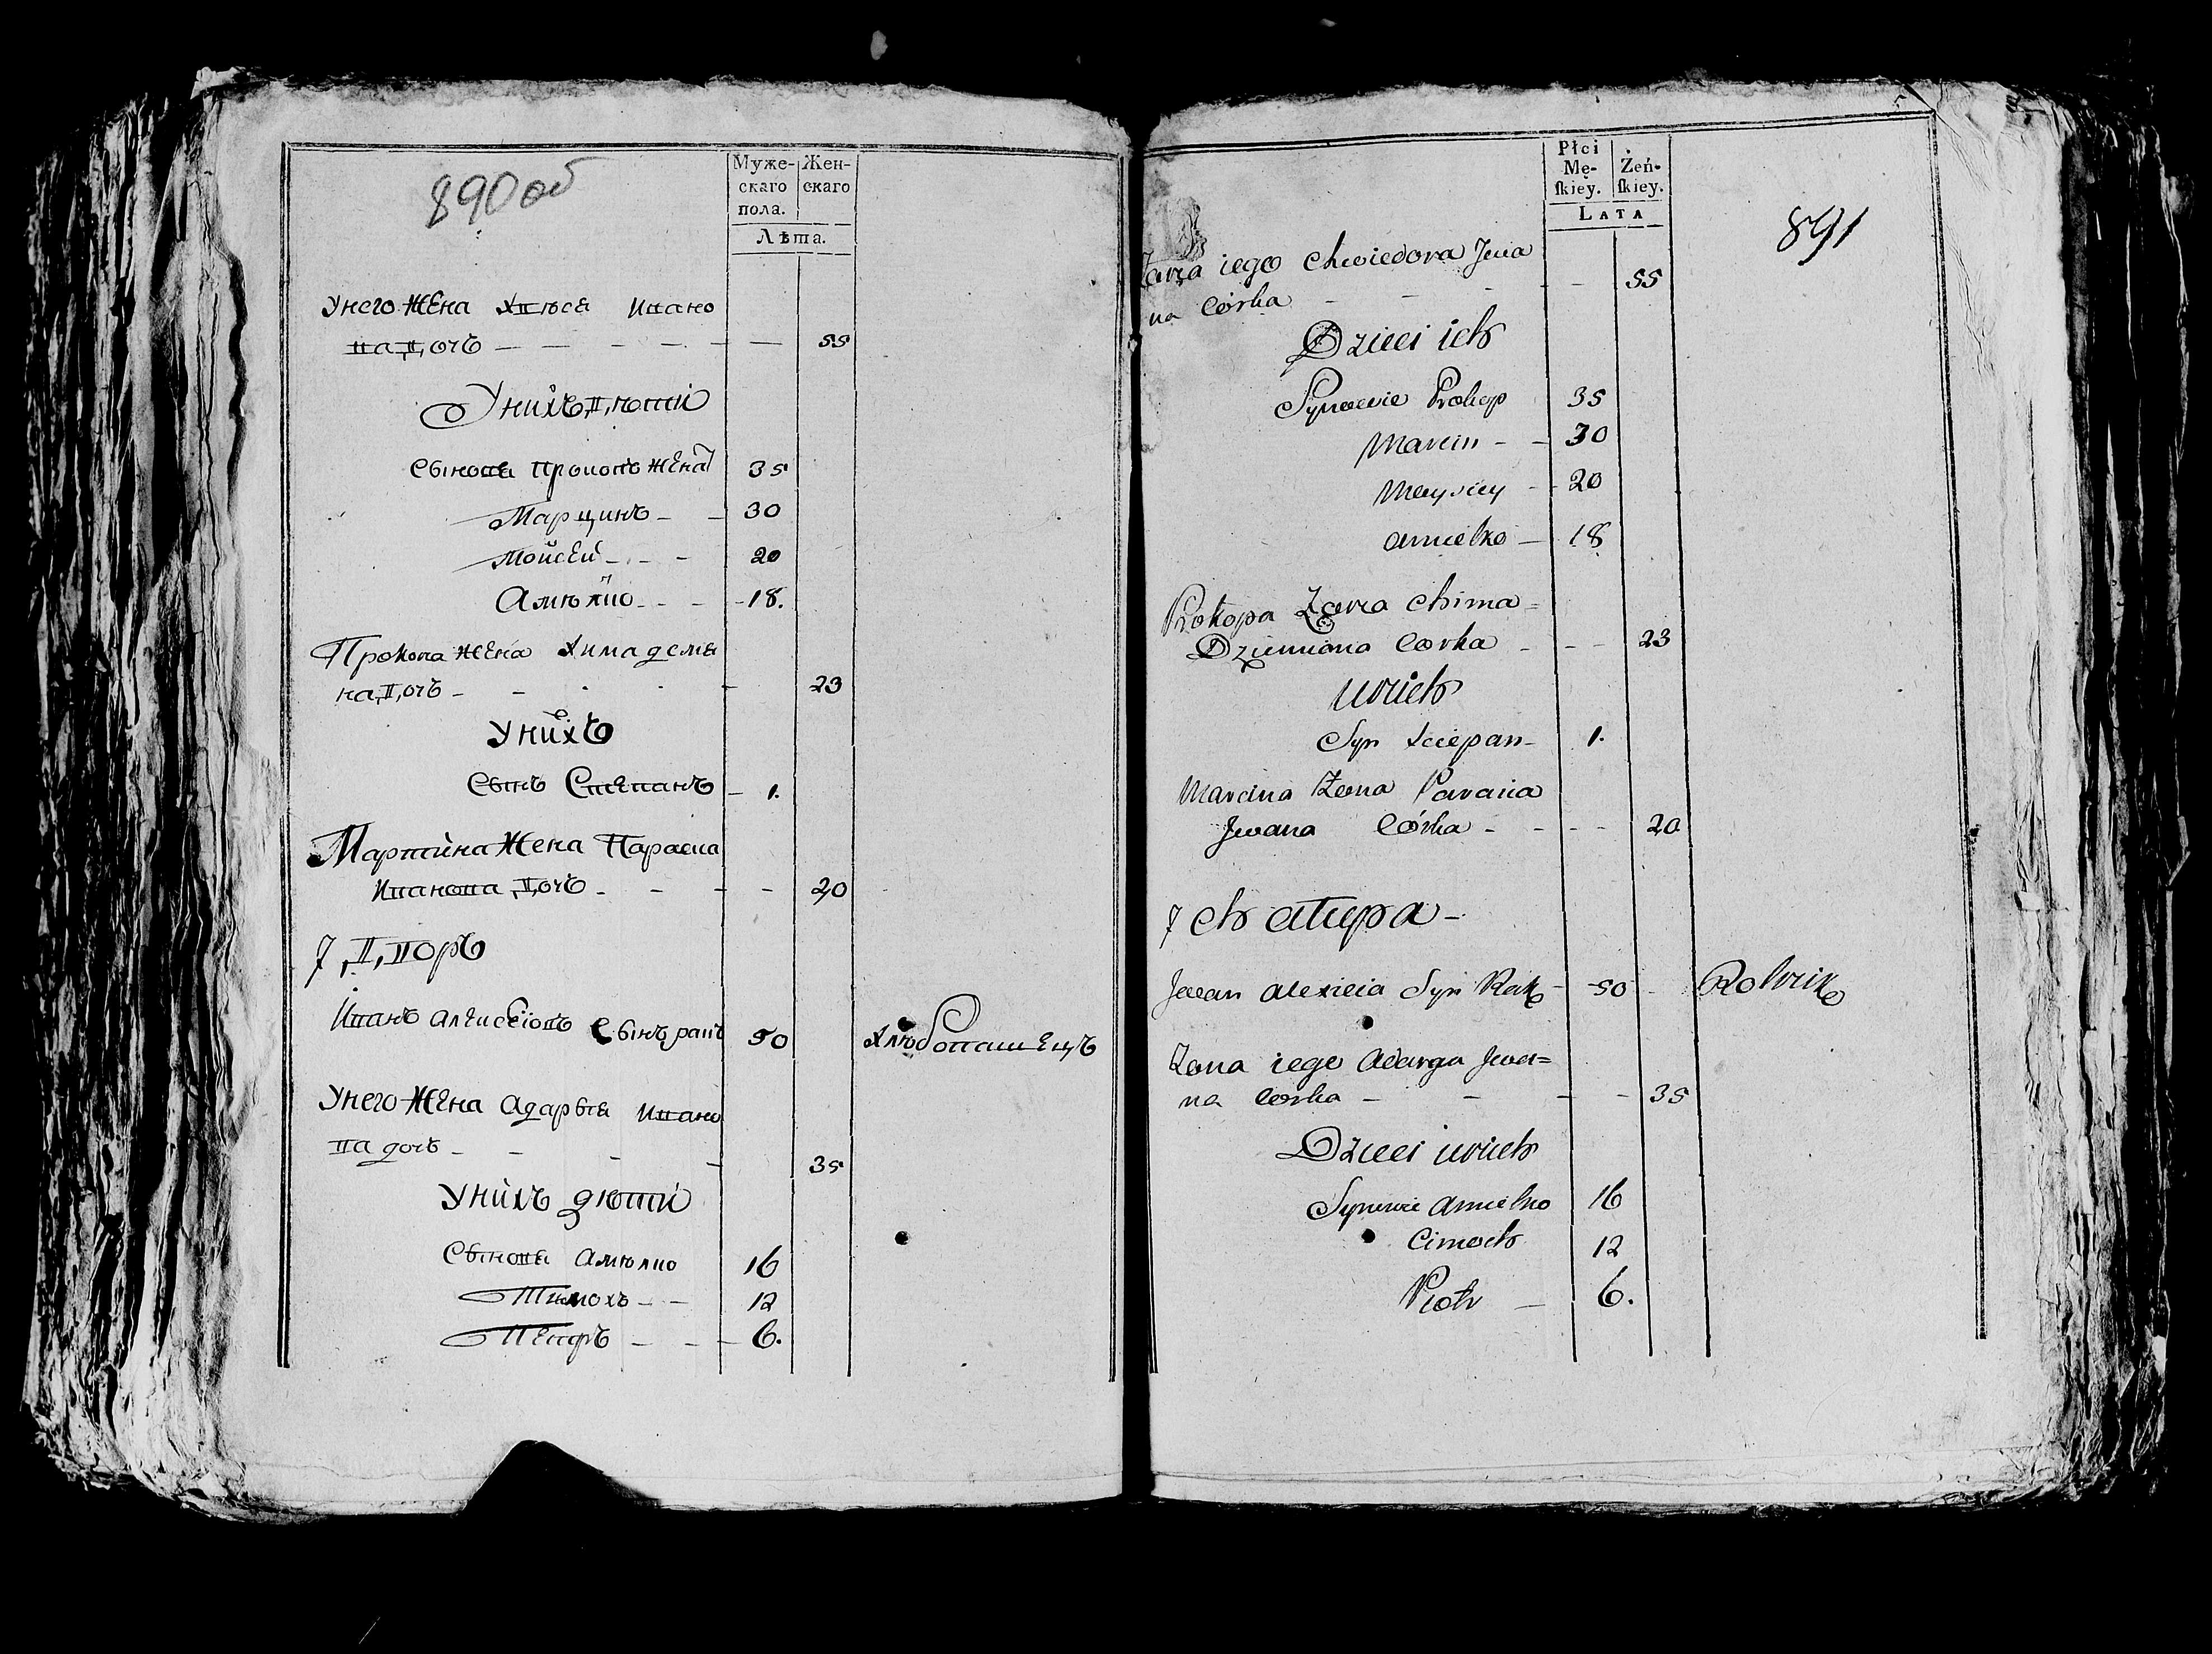 890 об
Муже- Жен-
скаго скаго
пола.
Лѣта.
Унего жена Хвѣся Ивано
ва дочъ - - - - - - 55
Унихъ дѣти
Сынове Прокопъ жена 35
Марцинъ - - 30
Мойсей - - - 20
Амѣлко - - - 18.
Прокопа жена Хима деми
на дочъ - - - - 23
Унихъ
Сынъ Степанъ - 1.
Мартина жена Параска
Иванова дочъ - - - - 20
7 дворъ
Иванъ Алексеювъ Сынъ ракъ 50 Хлѣбопашецъ
Унего жена Одарья Ивано
ва дочъ - - - - 35
Унихъ дѣти
Сынове Амѣлко 16
Тимохъ - - 12
Петръ - - - 6.
Płci
Mę- Żeń-
skiey. skiey.
LATA
891
Żona iego Chwiedora Jwa
na Córka - - - - - 55
Dzieci ich
Synowie Prokop 35
Marcin - - 30
Moysiey - - 20
Amielko - 18
Prokopa Żona Chima=
Dziemiana Corka - - - 23
U nich
Syn Sciepan - 1.
Marcina Żona Paraska
Jwana Córka - - - - 20
7 Chałupa -
Jwan Alexieia Syn Rak - 50 - Rolnik
Żona iego Adarya Jwa=
na Corka - - - - 35
Dzieci u nich
Synowie Amielko 16
Cimoch 12
Piotr - 6.